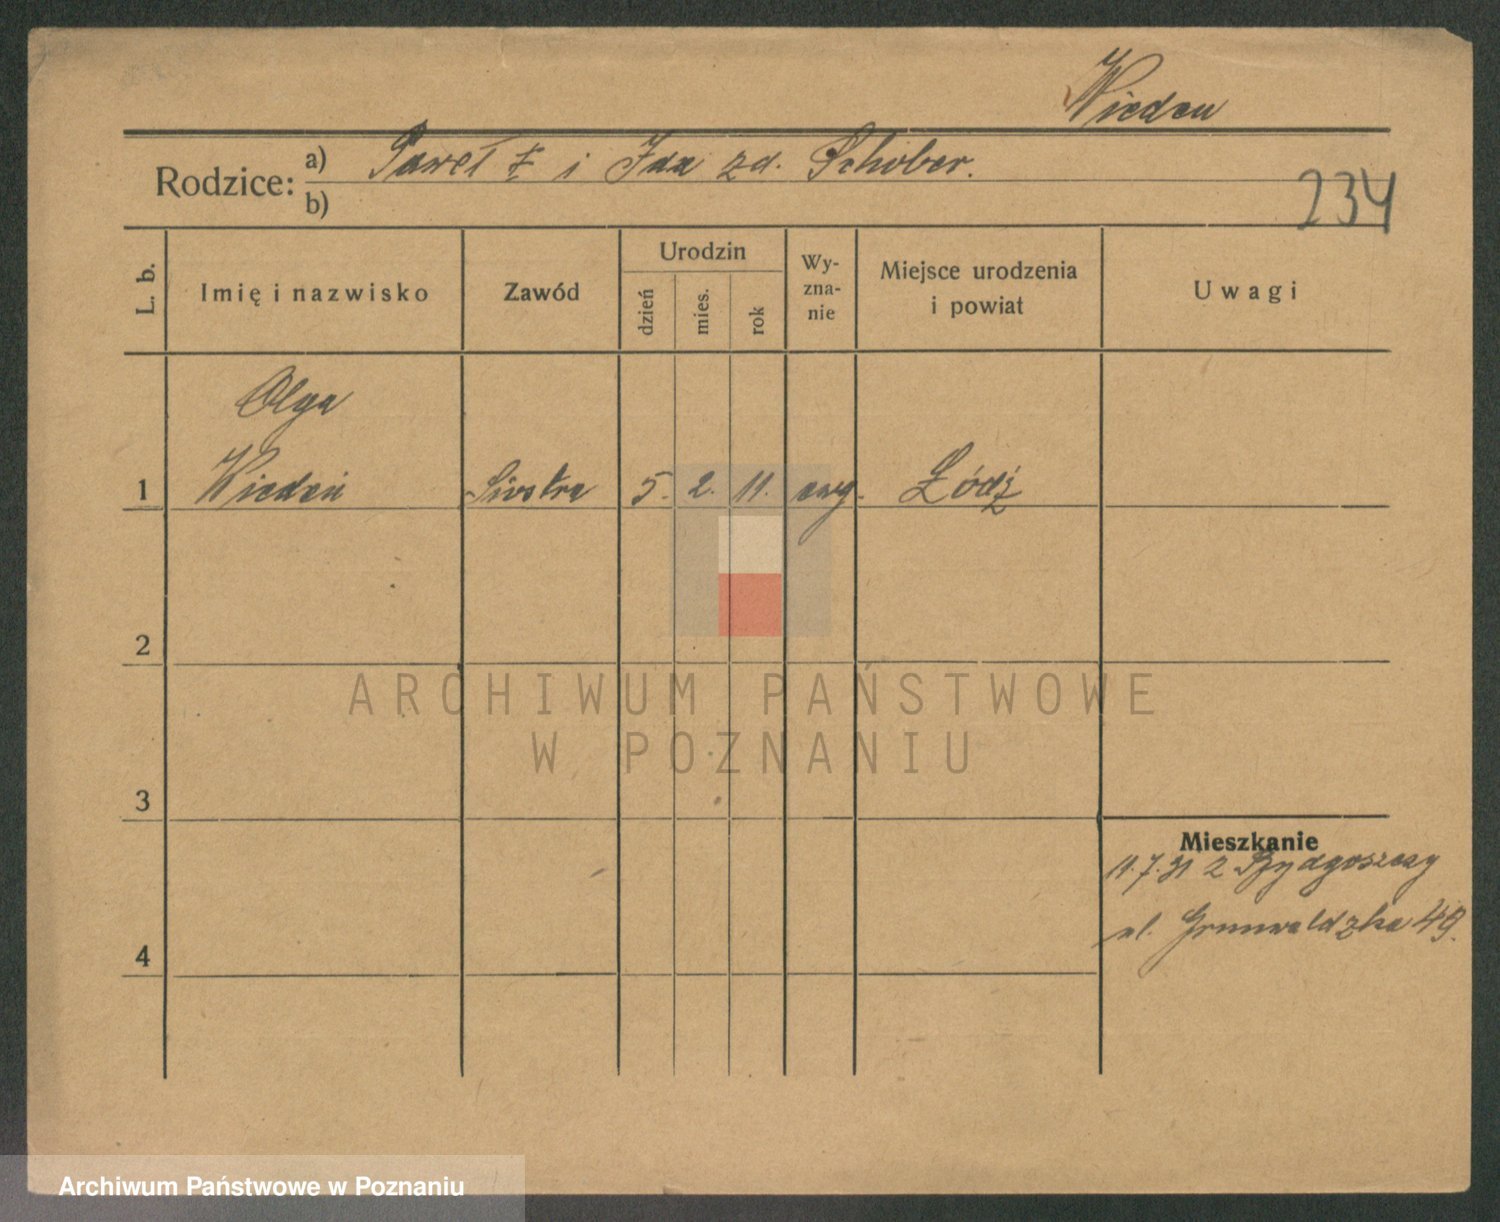 Wieden
Rodzice: a) Paweł ż i Ida zd. Schober.
b)
234
L. b.
Imię i nazwisko
Zawód
Urodzin
dzień
mies.
rok
Wy-
zna-
nie
Miejsce urodzenia
i powiat
Uwagi
Olga
1 Wiedeń Siostra 5. 2. 11. ewg. Łódź
2
3
4
Mieszkanie
11.7.31 z Bydgoszczy
ul. Grunwaldzka 49.
ARCHIWUM PAŃSTWOWE
W POZNANIU
Archiwum Państwowe w Poznaniu